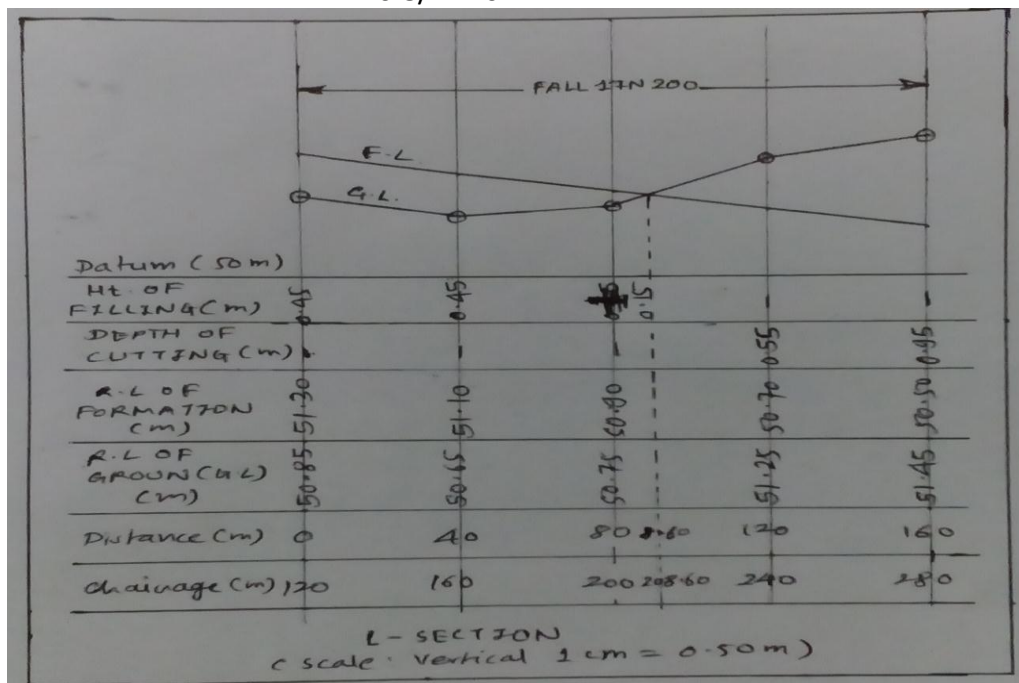 FALL 1IN 200
F.L
G.L.
Datum (50m)
Ht. OF
FILLING(m) 0.45 0.45 0.15 - -
DEPTH OF
CUTTING(m) - - - 0.55 0.95
R.L OF
FORMATION
(m) 51.30 51.10 50.90 50.70 50.50
R.L OF
GROUN(GL)
(m) 50.85 50.65 50.75 51.25 51.45
Distance (m) 0 40 80 8.60 120 160
chainage (m) 120 160 200 208.60 240 280
L-SECTION
(scale. vertical 1 cm = 0.50m)